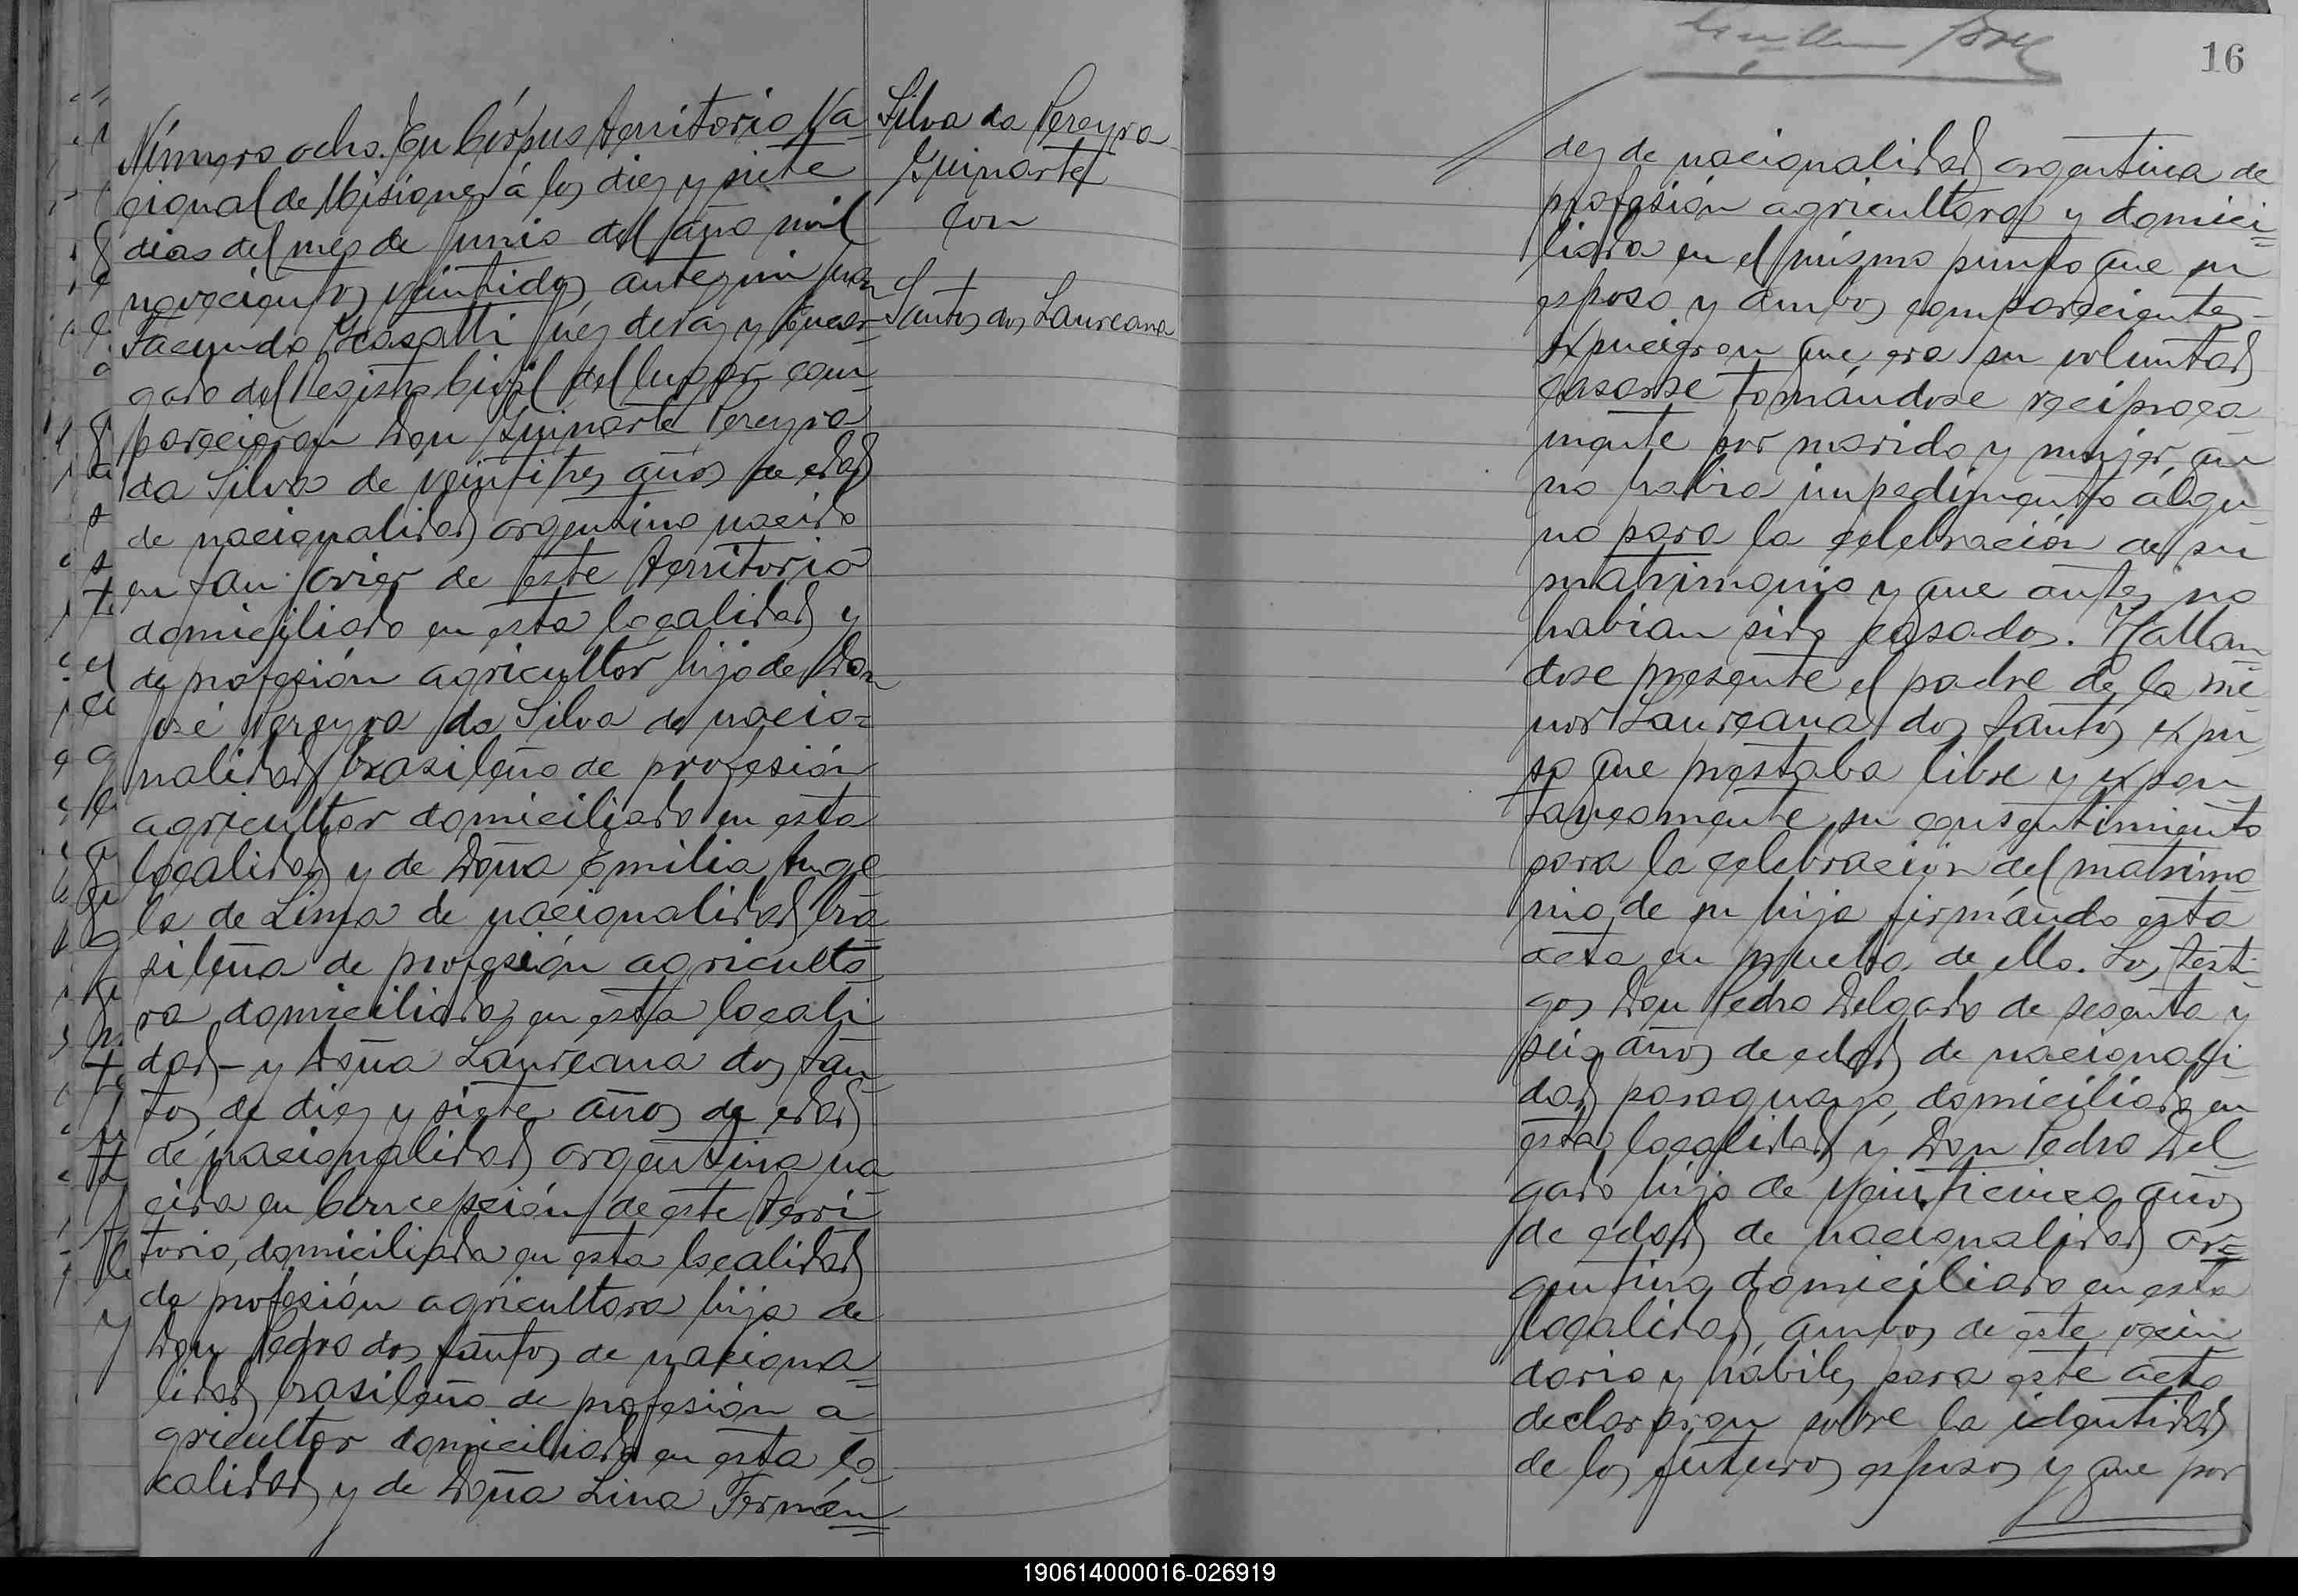 Número ocho. En Córpus territorio Na-
cional de Misiones á los diez y siete
dias del mes de Junio del año mil
novecientos veintidos, ante mi Juan
Facundo Casatti Juez de Paz y Encar-
gado del Registro Civil del lugar com-
parecieron Don Guinarte Pereyra
da Silva de veintitres años de edad
de nacionalidad argentino nacido
en San Javier de este territorio
domiciliado en esta localidad y
de profesión agricultor hijo de Don
José Pereyra da Silva de nacio-
nalidad brasileño de profesión
agricultor domiciliado en esta
localidad y de Doña Emilia Ange
la de Lima de nacionalidad bra
sileña de profesión agriculto
ra domiciliada en esta locali
dad - y Doña Laureana dos San
tos de diez y siete años de edad
de nacionalidad argentina na
cida en Concepción de este terri
torio, domiciliada en esta localidad
de profesión agricultora hija de
Don Pedro dos Santos de naciona-
lidad brasileño de profesión a
gricultor domiciliado en esta lo
calidad y de Doña Lina Fernán
Silva da Pereyra
Guinarte
con
Santos dos Laureana
16
dez de nacionalidad argentina de
profesión agricultora y domici-
liada en el mismo punto que su
esposo y ambos comparecientes
expucieron que era su voluntad
casarse tomándose reciproca
mente por marido y mujer, que
no habia impedimento algu
no para la celebración de su
matrimonio y que antes no
habian sido casados. Hallan
dose presente el padre de la me
nor Laureana dos Santos expu
so que prestaba libre y expon
taneamente su consentimiento
para la celebración del matrimo
nio de su hija firmando esta
acta en prueba de ello. Los testi-
gos Don Pedro Delgado de sesenta y
seis años de edad de nacionali
dad paraguayo, domiciliado en
esta localidad y Don Pedro Del-
gado hijo de veinticinco años
de edad de nacionalidad ar-
gentino domiciliado en esta
localidad, ambos de este vecin
dario y hábiles para este acto
declararon sobre la identidad
de los futuros esposos y que por
190614000016-026919